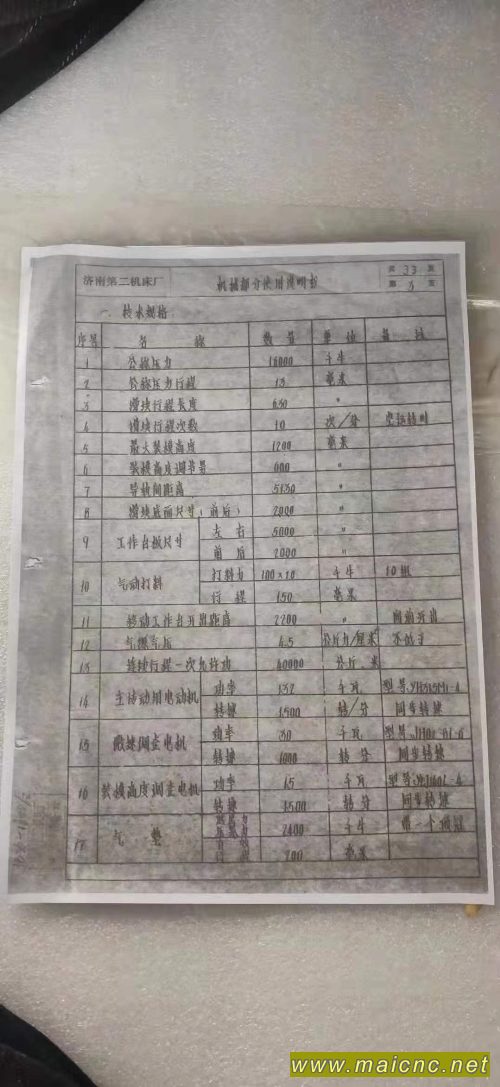 济南第二机床厂 机械部分使用说明书 共 33 页
第 3 页
一 技术规格
序号 名称 数量 单位 备注
1 公称压力 16000 千牛
2 公称压力行程 13 毫米
3 滑块行程长度 650 〃
4 滑块行程次数 10 次/分 空运转时
5 最大装模高度 1200 毫米
6 装模高度调节量 600 〃
7 导轨间距离 5130 〃
8 滑块底面尺寸(前后) 2000 〃
9 工作台板尺寸 左右 5000 〃
前后 2000 〃
10 气动打料 打料力 100×10 千牛 10组
行程 150 毫米
11 移动工作台开出距离 2200 〃
12 气压 4.5 公斤力/厘米 不低于
13 连续行程一次允许功 40000 公斤.米
14 主传动用电动机 功率 132 千瓦 型号
转速 1500 转/分 同步转速
15 微速调整电机 功率 30 千瓦 型号
转速 1000 转/分 同步转速
16 装模高度调整电机 功率 15 千瓦 型号
转速 1500 转/分 同步转速
17 气垫 2400 千牛 带一个
毫米
www.maicnc.net